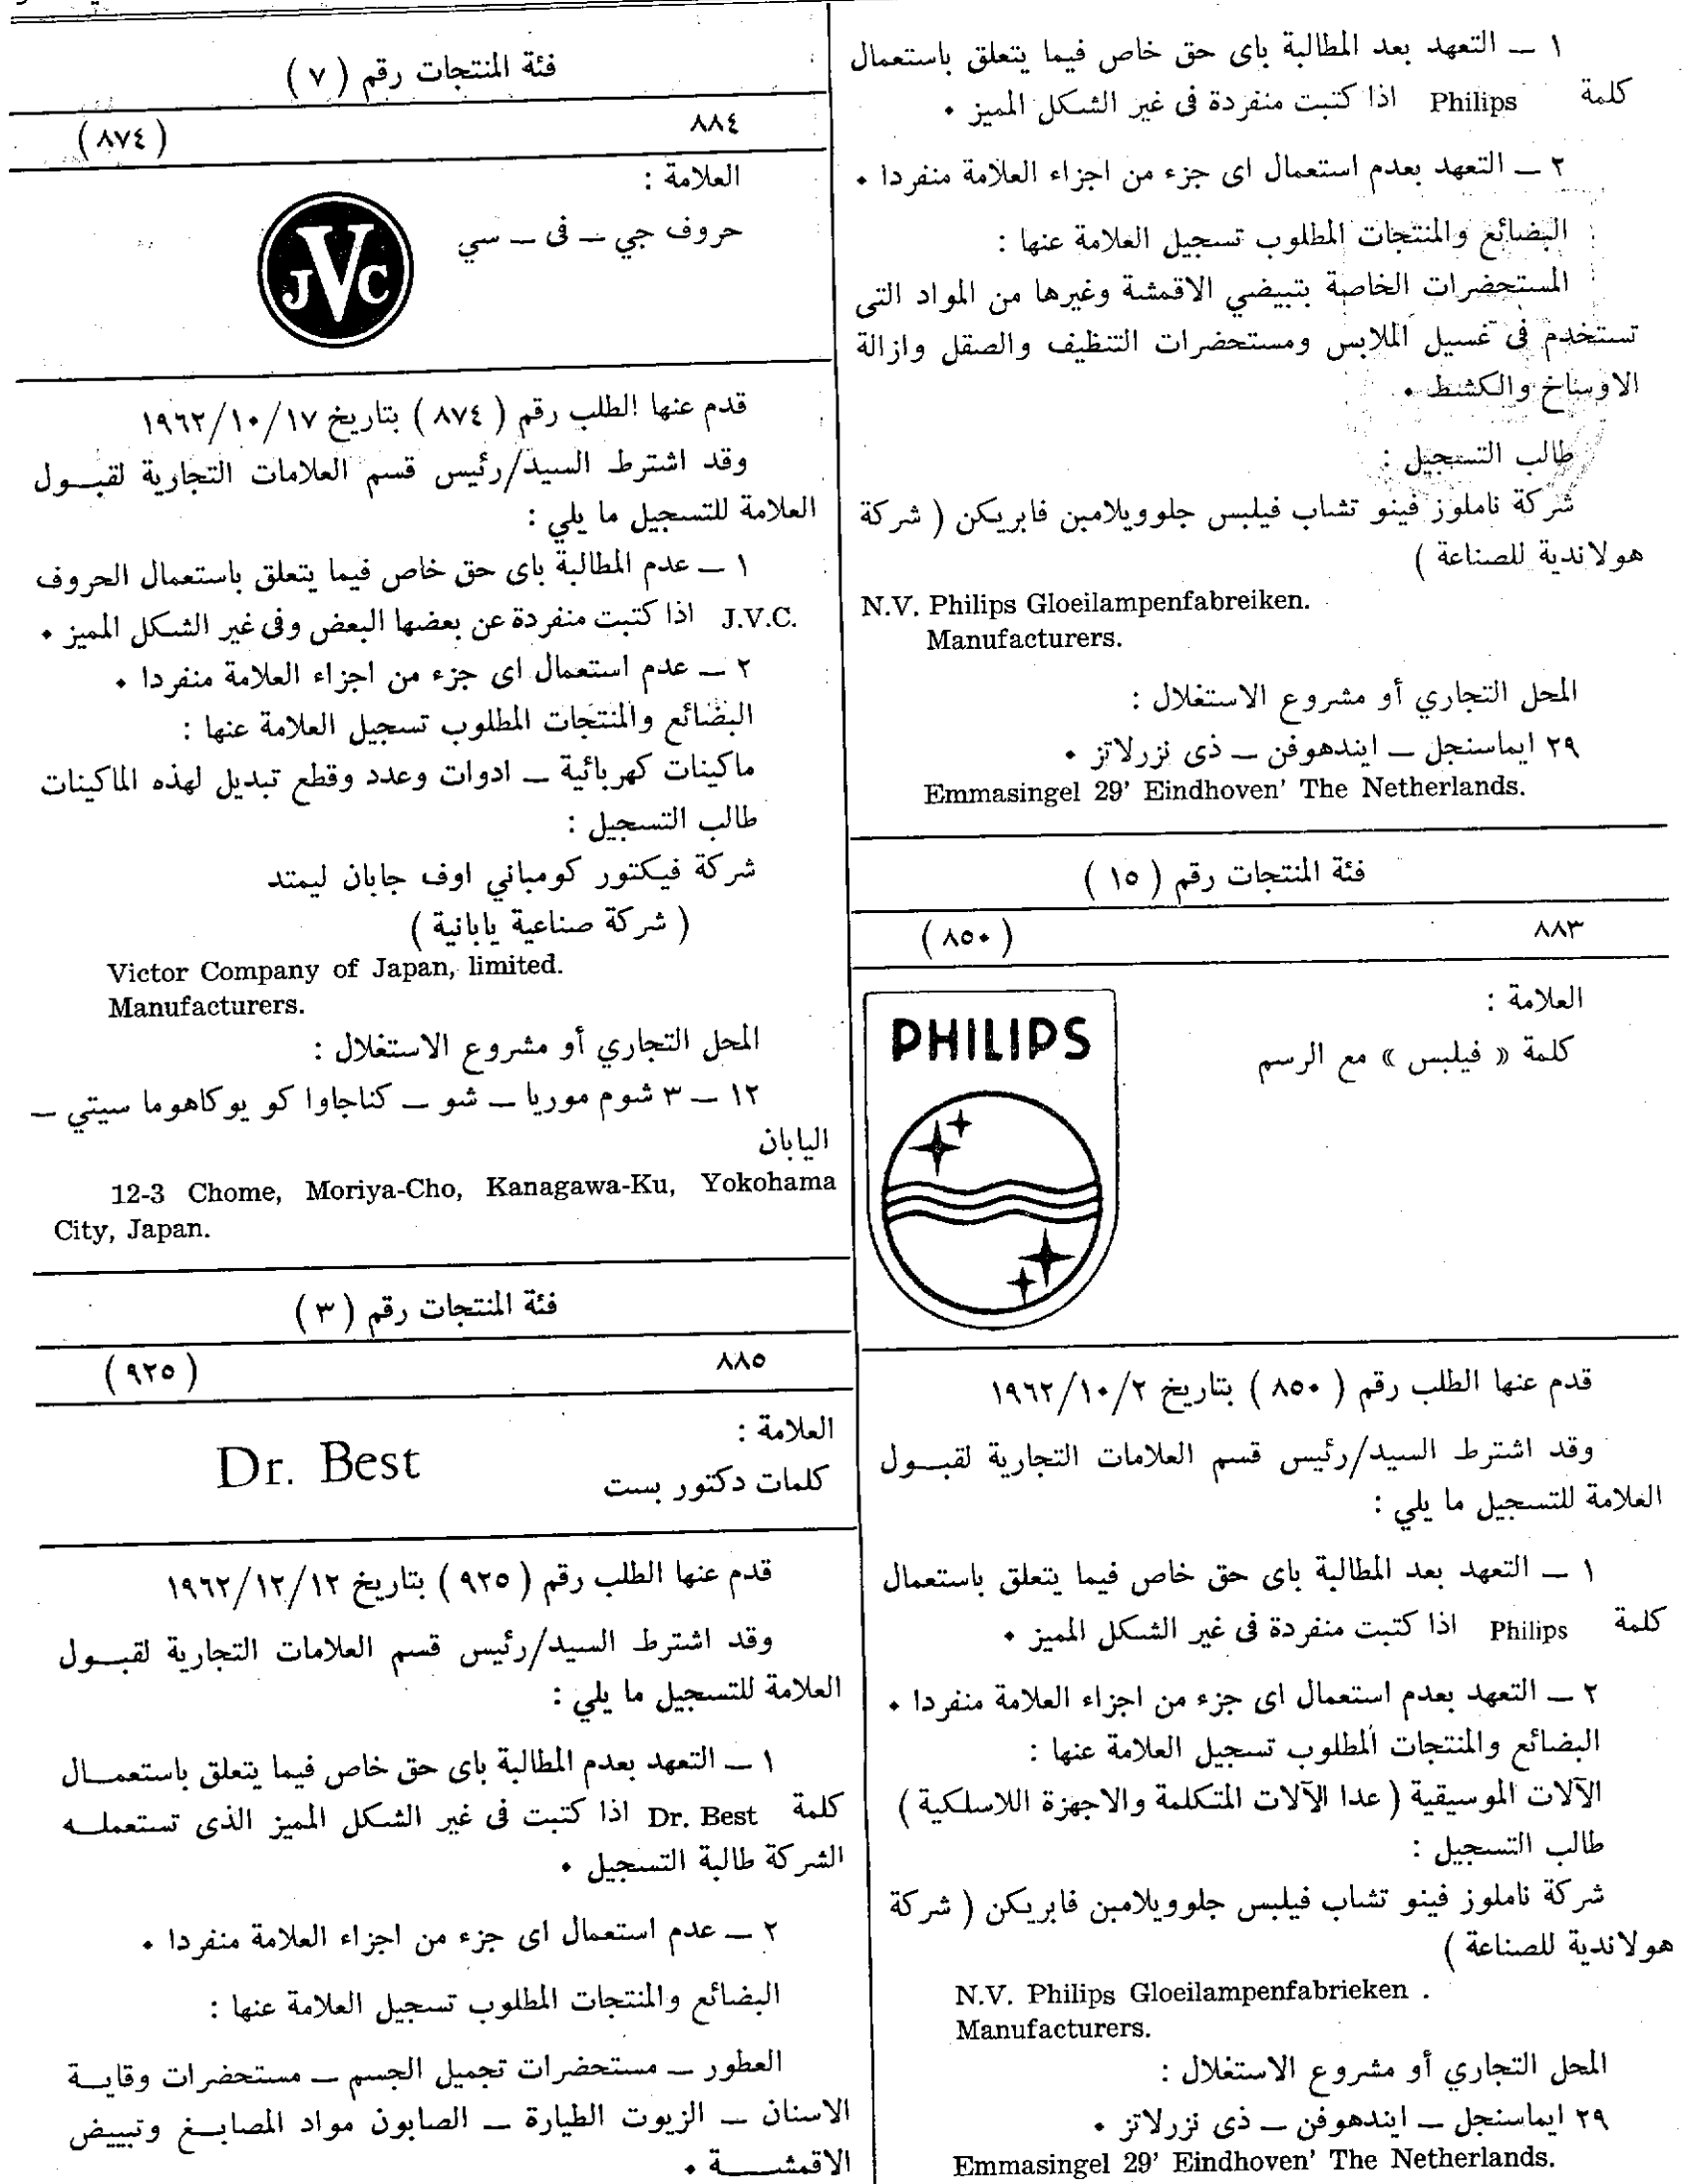 ١ ــ التعهد بعد المطالبة باى حق خاص فيما يتعلق باستعمال
كلمة Philips اذا كتبت منفردة فى غير الشكل المميز •
٢ ــ التعهد بعدم استعمال اى جزء من اجزاء العلامة منفردا •
البضائع والمنتجات المطلوب تسجيل العلامة عنها :
المستحضرات الخاصة بتبيضي الاقمشة وغيرها من المواد التى
تستخدم فى غسيل الملابس ومستحضرات التنظيف والصقل وازالة
الاوساخ والكشط •
طالب التسجيل :
شركة ناملوز فينو تشاب فيلبس جلوويلامبن فابريكن ( شركة
هولاندية للصناعة )
N.V. Philips Gloeilampenfabreiken.
Manufacturers.
المحل التجاري أو مشروع الاستغلال :
٢٩ ايماسنجل ــ ايندهوفن ــ ذى نزرلاتز •
Emmasingel 29' Eindhoven' The Netherlands.
فئة المنتجات رقم ( ١٥ )
٨٨٣ ( ٨٥٠ )
العلامة :
كلمة « فيلبس » مع الرسم
PHILIPS
قدم عنها الطلب رقم ( ٨٥٠ ) بتاريخ ١٩٦٢/١٠/٢
وقد اشترط السيد/رئيس قسم العلامات التجارية لقبــول
العلامة للتسجيل ما يلي :
١ ــ التعهد بعد المطالبة باى حق خاص فيما يتعلق باستعمال
كلمة Philips اذا كتبت منفردة فى غير الشكل المميز •
٢ ــ التعهد بعدم استعمال اى جزء من اجزاء العلامة منفردا •
البضائع والمنتجات المطلوب تسجيل العلامة عنها :
الآلات الموسيقية ( عدا الآلات المتكلمة والاجهزة اللاسلكية )
طالب التسجيل :
شركة ناملوز فينو تشاب فيلبس جلوويلامبن فابريكن ( شركة
هولاندية للصناعة )
N.V. Philips Gloeilampenfabrieken .
Manufacturers.
المحل التجاري أو مشروع الاستغلال :
٢٩ ايماسنجل ــ ايندهوفن ــ ذى نزرلاتز •
Emmasingel 29' Eindhoven' The Netherlands.
فئة المنتجات رقم ( ٧ )
٨٨٤ ( ٨٧٤ )
العلامة :
حروف جي ــ فى ــ سي
JVC
قدم عنها الطلب رقم ( ٨٧٤ ) بتاريخ ١٩٦٢/١٠/١٧
وقد اشترط السيد/رئيس قسم العلامات التجارية لقبــول
العلامة للتسجيل ما يلي :
١ ــ عدم المطالبة باى حق خاص فيما يتعلق باستعمال الحروف
J.V.C. اذا كتبت منفردة عن بعضها البعض وفى غير الشكل المميز •
٢ ــ عدم استعمال اى جزء من اجزاء العلامة منفردا •
البضائع والمنتجات المطلوب تسجيل العلامة عنها :
ماكينات كهربائية ــ ادوات وعدد وقطع تبديل لهذه الماكينات
طالب التسجيل :
شركة فيكتور كومباني اوف جابان ليمتد
( شركة صناعية يابانية )
Victor Company of Japan, limited.
Manufacturers.
المحل التجاري أو مشروع الاستغلال :
١٢ ــ ٣ شوم موريا ــ شو ــ كناجاوا كو يوكاهوما سيتي ــ
اليابان
12-3 Chome, Moriya-Cho, Kanagawa-Ku, Yokohama
City, Japan.
فئة المنتجات رقم ( ٣ )
٨٨٥ ( ٩٢٥ )
العلامة :
كلمات دكتور بست
Dr. Best
قدم عنها الطلب رقم ( ٩٢٥ ) بتاريخ ١٩٦٢/١٢/١٢
وقد اشترط السيد/رئيس قسم العلامات التجارية لقبــول
العلامة للتسجيل ما يلي :
١ ــ التعهد بعدم المطالبة باى حق خاص فيما يتعلق باستعمــال
كلمة Dr. Best اذا كتبت فى غير الشكل المميز الذى تستعملــه
الشركة طالبة التسجيل •
٢ ــ عدم استعمال اى جزء من اجزاء العلامة منفردا •
البضائع والمنتجات المطلوب تسجيل العلامة عنها :
العطور ــ مستحضرات تجميل الجسم ــ مستحضرات وقايــة
الاسنان ــ الزيوت الطيارة ــ الصابون مواد المصابــغ وتبييض
الاقمشــــة •